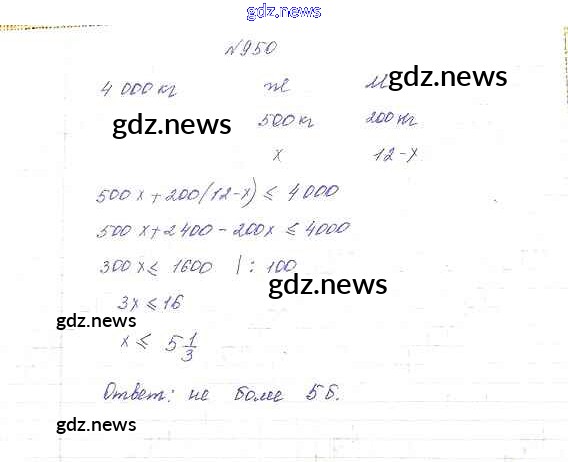 gdz.news
№950
4 000 кг же м
gdz.news
gdz.news
500 кг 200 кг
x 12-x
500x+200(12-x) ≤ 4000
500x+2400-200x ≤ 4000
300x ≤ 1600 | : 100
gdz.news
3x ≤ 16
gdz.news
x ≤ 5 1/3
Ответ: не более 5 б.
gdz.news